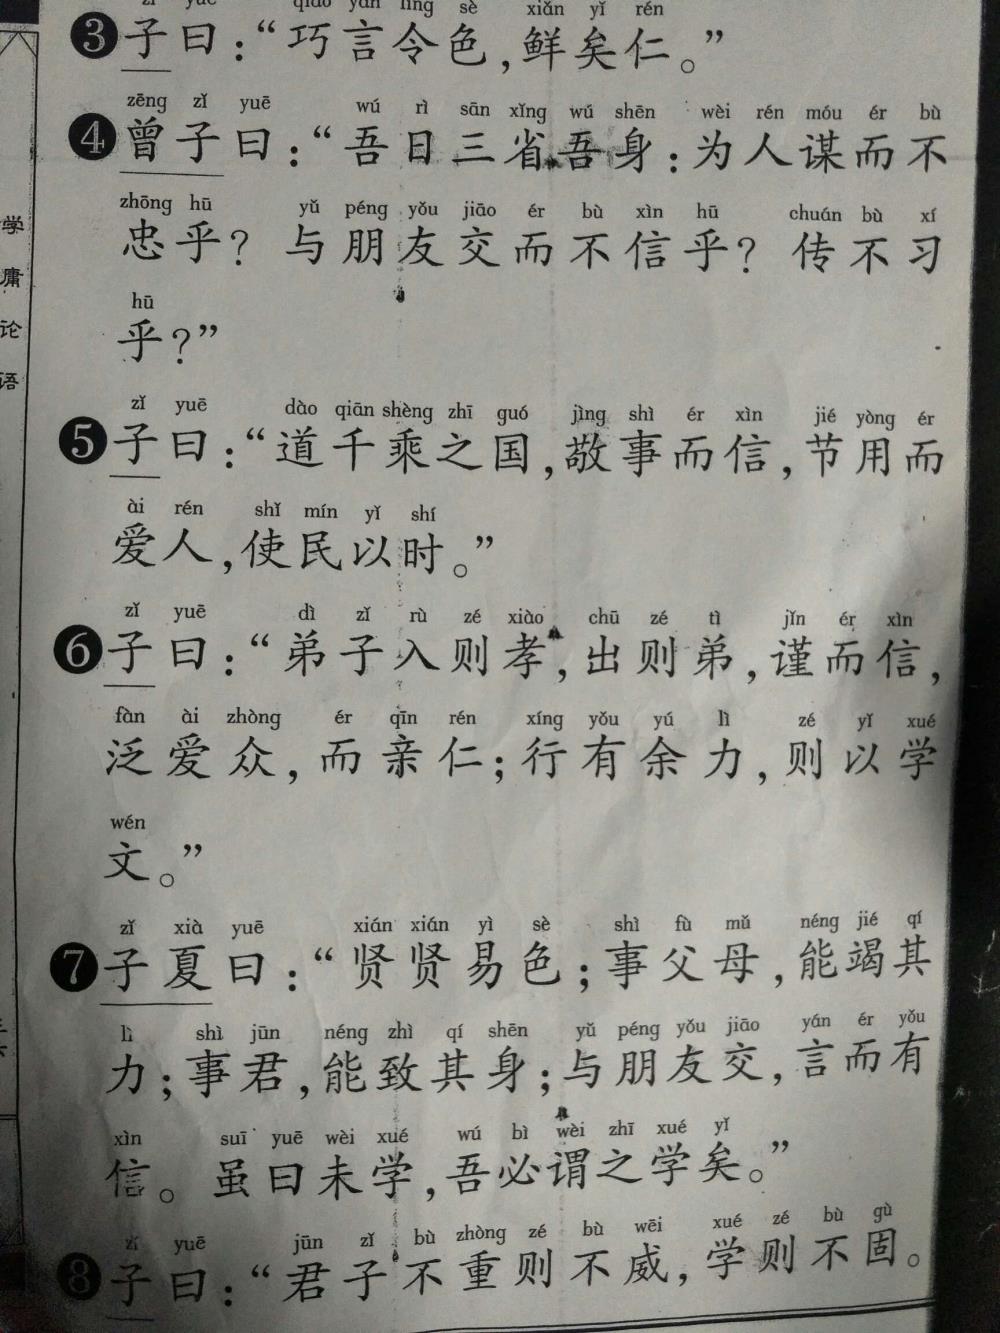 qiǎo yán lìng sè xiǎn yǐ rén
❸子曰：“巧言令色，鲜矣仁。”
zēng zǐ yuē wú rì sān xǐng wú shēn wèi rén móu ér bù
❹曾子曰：“吾日三省吾身：为人谋而不
zhōng hū yǔ péng yǒu jiāo ér bù xìn hū chuán bù xí
忠乎？与朋友交而不信乎？传不习
hū
乎？”
zǐ yuē dào qiān shèng zhī guó jìng shì ér xìn jié yòng ér
❺子曰：“道千乘之国，敬事而信，节用而
ài rén shǐ mín yǐ shí
爱人，使民以时。”
zǐ yuē dì zǐ rù zé xiào chū zé tì jǐn ér xìn
❻子曰：“弟子入则孝，出则弟，谨而信，
fàn ài zhòng ér qīn rén xíng yǒu yú lì zé yǐ xué
泛爱众，而亲仁；行有余力，则以学
wén
文。”
zǐ xià yuē xián xián yì sè shì fù mǔ néng jié qí
❼子夏曰：“贤贤易色；事父母，能竭其
lì shì jūn néng zhì qí shēn yǔ péng yǒu jiāo yán ér yǒu
力；事君，能致其身；与朋友交，言而有
xìn suī yuē wèi xué wú bì wèi zhī xué yǐ
信。虽曰未学，吾必谓之学矣。”
zǐ yuē jūn zǐ bù zhòng zé bù wēi xué zé bù gù
❽子曰：“君子不重则不威，学则不固。
学庸论语